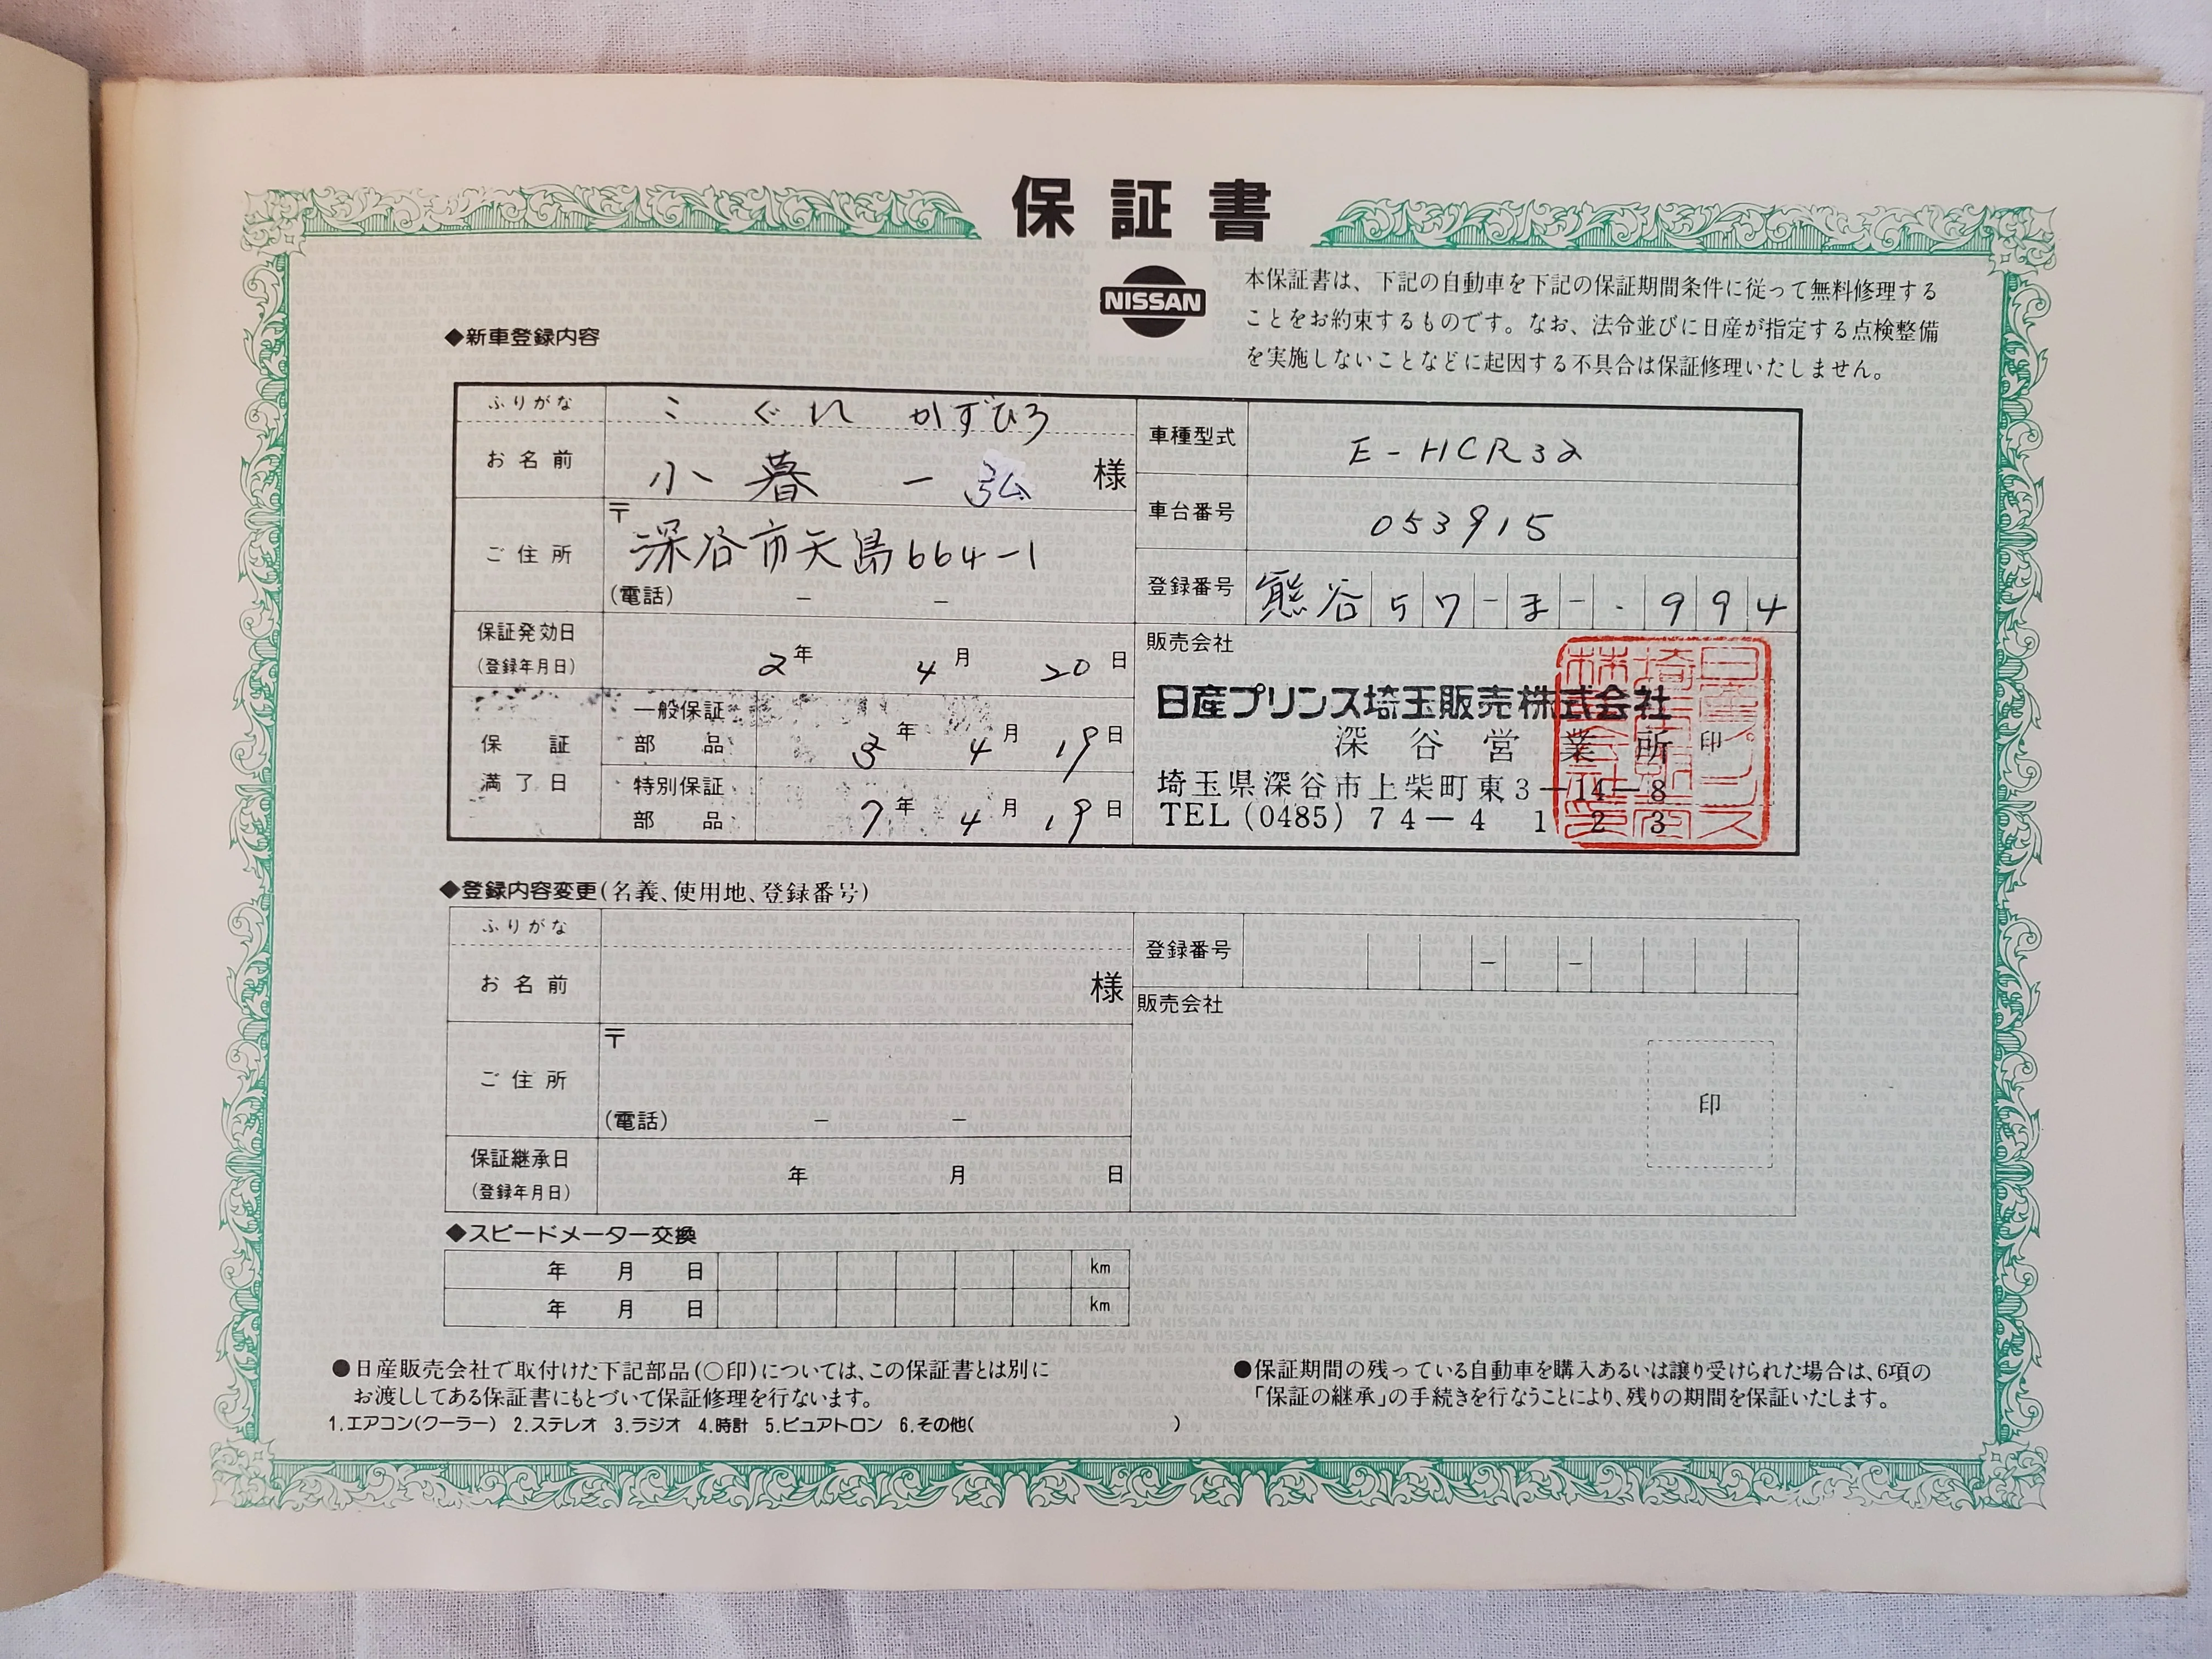 保証書
NISSAN
本保証書は、下記の自動車を下記の保証期間条件に従って無料修理する
ことをお約束するものです。なお、法令並びに日産が指定する点検整備
を実施しないことなどに起因する不具合は保証修理いたしません。
◆新車登録内容
ふりがな こぐれ かずひろ
お名前 小暮 一弘 様
ご住所 〒
深谷市矢島664-1
(電話) - -
保証発効日
(登録年月日) 2年 4月 20日
保証満了日
一般保証部品 3年 4月 19日
特別保証部品 7年 4月 19日
車種型式 E-HCR32
車台番号 053915
登録番号 熊谷 57-ま-・994
販売会社
日産プリンス埼玉販売株式会社
深谷営業所 印
埼玉県深谷市上柴町東3-14-8
TEL(0485)74-4123
◆登録内容変更(名義、使用地、登録番号)
ふりがな
お名前 様
ご住所 〒
(電話) - -
保証継承日
(登録年月日) 年 月 日
登録番号 - -
販売会社
印
◆スピードメーター交換
年 月 日 km
年 月 日 km
●日産販売会社で取付けた下記部品(○印)については、この保証書とは別に
お渡ししてある保証書にもとづいて保証修理を行ないます。
1.エアコン(クーラー) 2.ステレオ 3.ラジオ 4.時計 5.ピュアトロン 6.その他( )
●保証期間の残っている自動車を購入あるいは譲り受けられた場合は、6項の
「保証の継承」の手続きを行なうことにより、残りの期間を保証いたします。